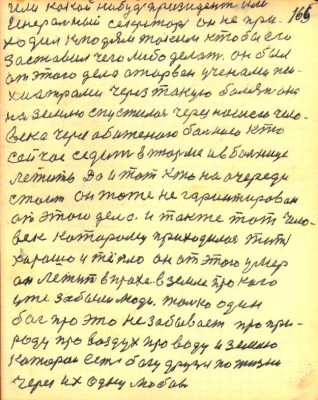 или какой нибудь президент или 166
Генеральный секретарь он не при-
ходил к людям таким кто бы его
заставил чего либо делать. он был
от этого дела оторван учеными пи-
хиатрами через такую болезн она
на землю спустилася через нашего чело-
века через абиженого больного кто
сойчас седит в тюрме и в больнице
лежить да и тот кто на очереди
стоит он тоже не гарантирован
от этого дело. и также тот чело-
век каторому приходилося жить
харашо и тепло он от этого умер
он лежит в прахе в земле про кого
уже забыли люди, толко один
бог про это не забывает про при-
роду про воздух про воду и землю
каторая есть богу друзя по жизни
через их одну любов